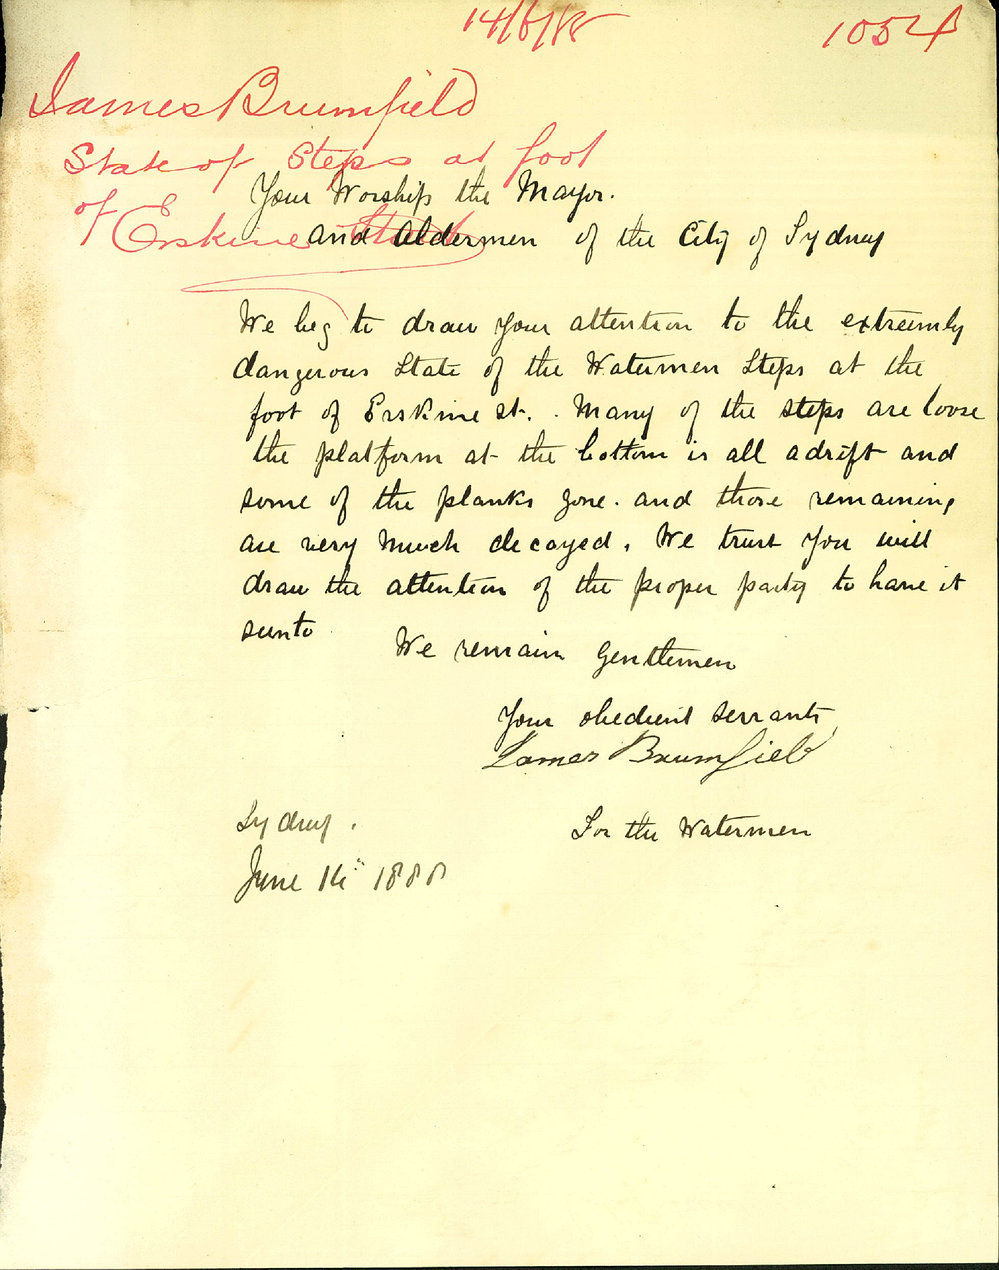 14/6/88
1054
James Brumfield
State of Steps at foot
of Erskine Street
Your Worship the Mayor.
and Aldermen of the City of Sydney
We beg to draw your attention to the extreemly
dangerous State of the Watermen Steps at the
foot of Erskine st. . Many of the steps are loose
the platform at the bottom is all adrift and
some of the planks gone. and those remaining
are very much decayed. We trust you will
draw the attention of the proper party to have it
seento
We remain Gentlemen
Your obedient servants
James Brumfield
For the Watermen
Sydney.
June 14" 1888